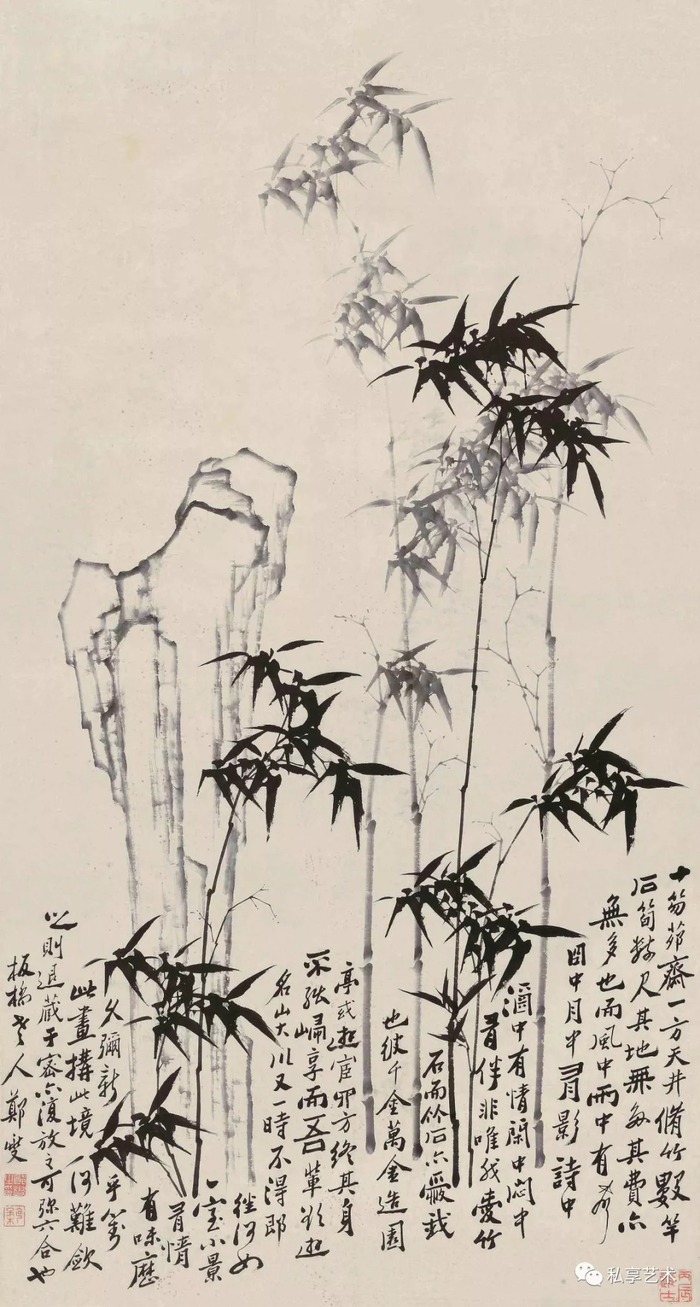 十笏茆齋一方天井脩竹數竿
石筍數尺其地無多其費亦
無多也而風中雨中有聲
日中月中有影詩中
酒中有情閑中悶中
有伴非唯我愛竹
石而竹石亦愛我
也彼千金萬金造園
亭或遊宦四方終其身
不能歸享而吾輩欲遊
名山大川又一時不得即
往何如
一室小景
有情
有味歷
久彌新
乎對
此畫構此境何難斂
之則退藏于密亦復放之可弥六合也
板橋老人鄭燮
私享艺术